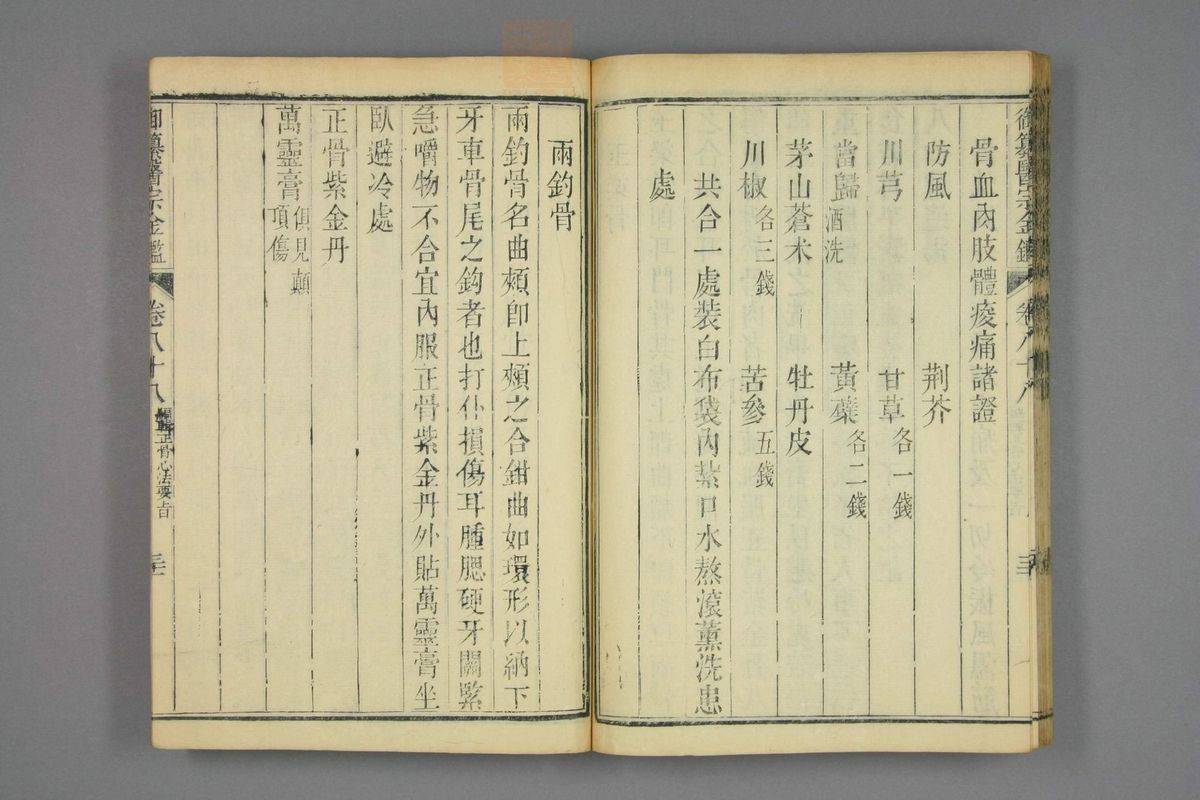 御纂醫宗金鑑 卷八十八
骨血肉肢體痠痛諸證
防風 荆芥
川芎 甘草各一錢
當歸酒洗 黃蘗各二錢
茅山蒼术 牡丹皮
川椒各三錢 苦參五錢
共合一處裝白布袋內紮口水熬滾薰洗患
處
兩釣骨
兩釣骨名曲頰卽上頰之合鉗曲如環形以納下
牙車骨尾之鈎者也打仆損傷耳腫腮硬牙關緊
急嚼物不合宜內服正骨紫金丹外貼萬靈膏坐
臥避冷處
正骨紫金丹
萬靈膏俱見巔頂傷
御纂醫宗金鑑 卷八十八 編輯正骨心法要旨